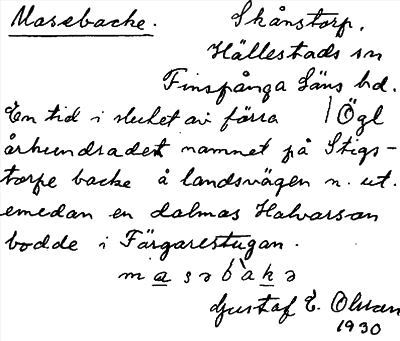 Masebacke. Skånstorp.
Hällestads sn
Finspånga Läns hd.
En tid i slutet av förra / Ögl
århundradet namnet på Stigs-
torpe backe å landsvägen n. ut.
emedan en dalmas Halvarson
bodde i Färgarestugan.
m a s ə b a k ə
Gustaf E. Olsson
1930